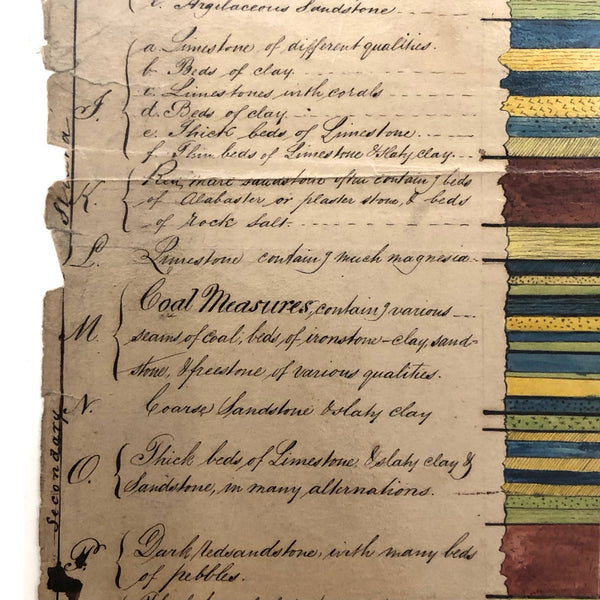 c. Argilaceous Sandstone
a. Limestone of different qualities.
b. Beds of clay.
c. Limestones, with corals
J. d. Beds of clay.
e. Thick beds of Limestone.
f. Thin beds of Limestone & slaty clay.
sandstone often contain g beds
K. of Alabaster, or plaster stone, & beds
of Rock Salt.
L. Limestone contain g much magnesia.
Coal Measures, contain g various
M. seams, of coal, beds, of ironstone-clay, sand-
stone, & freestone, of various qualities.
N. Coarse Sandstone & slaty clay
O. Thick beds of Limestone, & slaty clay &
Sandstone, in many alternations.
P. Dark redsandstone, with many beds
of pebbles.
Secondary
Strata